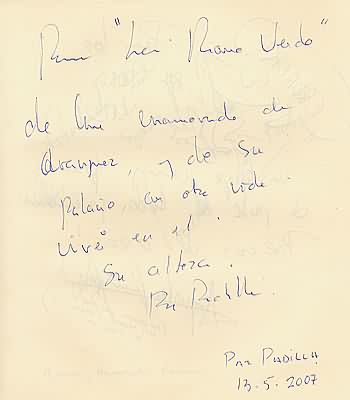 Para "La Rana Verde"
de una enamorada de
Aranjuez, y de su
Palacio en otra vida
viví en el.
Su alteza.
Paz Padilla.
PAZ PADILLA
13-5-2007